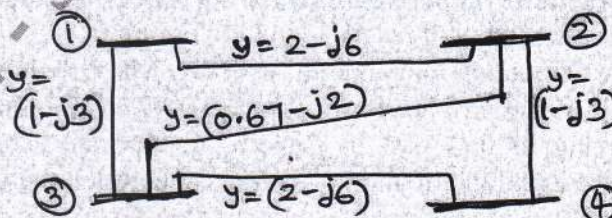 ① y = 2-j6 ②
y = (1-j3)
y = (0.67-j2)
y = (1-j3)
③ y = (2-j6) ④